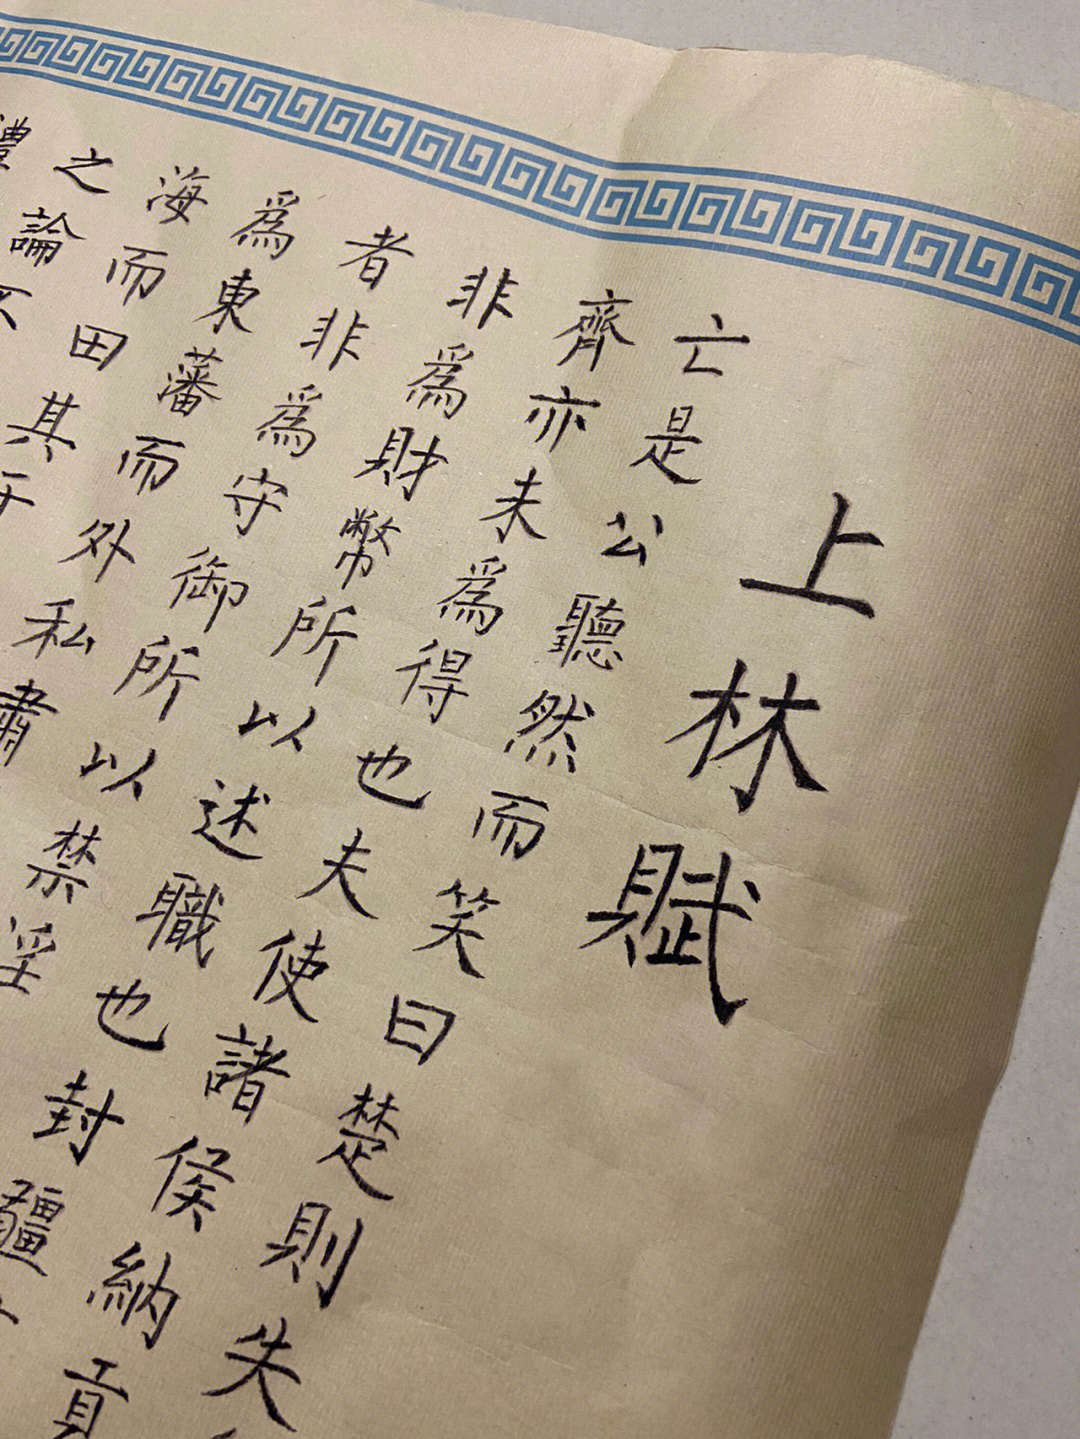 上林賦
亡是公聽然而笑曰楚則失
齊亦未爲得也夫使諸侯納貢
非爲財幣所以述職也封疆
者非爲守御所以禁淫
爲東藩而外私肅
海而田其于
之論不
禮